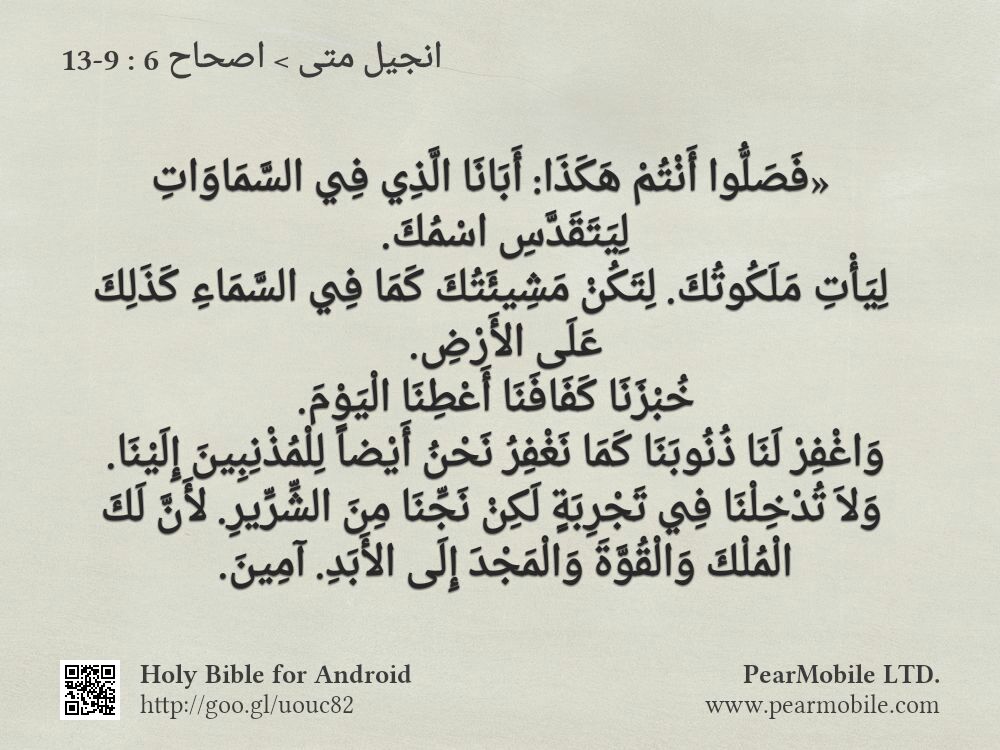 انجيل متى > اصحاح 6 : 9-13
«فَصَلُّوا أَنْتُمْ هَكَذَا: أَبَانَا الَّذِي فِي السَّمَاوَاتِ
لِيَتَقَدَّسِ اسْمُكَ.
لِيَأْتِ مَلَكُوتُكَ. لِتَكُنْ مَشِيئَتُكَ كَمَا فِي السَّمَاءِ كَذَلِكَ
عَلَى الأَرْضِ.
خُبْزَنَا كَفَافَنَا أَعْطِنَا الْيَوْمَ.
وَاغْفِرْ لَنَا ذُنُوبَنَا كَمَا نَغْفِرُ نَحْنُ أَيْضاً لِلْمُذْنِبِينَ إِلَيْنَا.
وَلاَ تُدْخِلْنَا فِي تَجْرِبَةٍ لَكِنْ نَجِّنَا مِنَ الشِّرِّيرِ. لأَنَّ لَكَ
الْمُلْكَ وَالْقُوَّةَ وَالْمَجْدَ إِلَى الأَبَدِ. آمِينَ.
Holy Bible for Android
http://goo.gl/uouc82
PearMobile LTD.
www.pearmobile.com